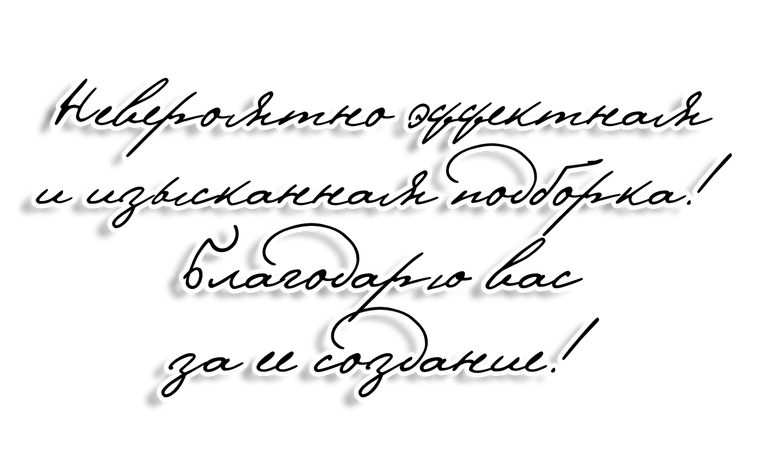 Невероятно эффектная
и изысканная подборка!
Благодарю вас
за ее создание!